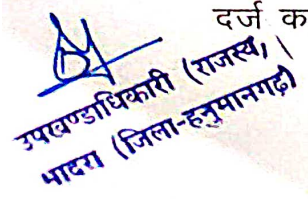 दर्ज क
उपखण्डाधिकारी (राजस्व)
भादरा (जिला-हनुमानगढ़)